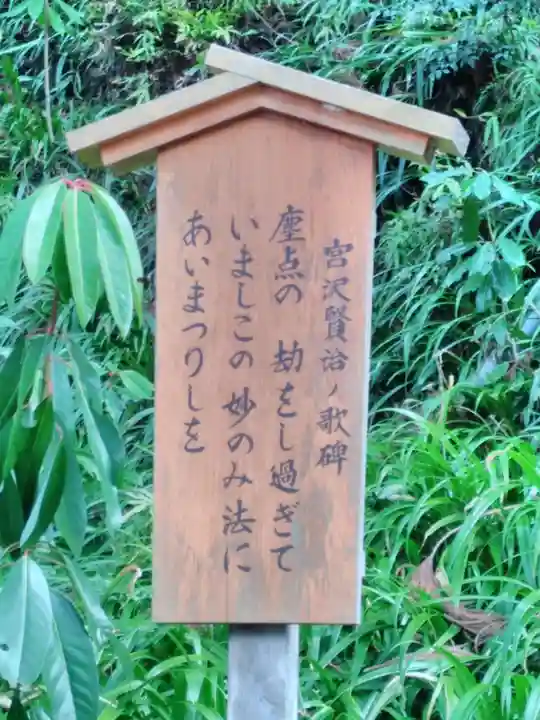 宮沢賢治ノ歌碑
塵点の 劫をし過ぎて
いましこの 妙のみ法に
あいまつりしを